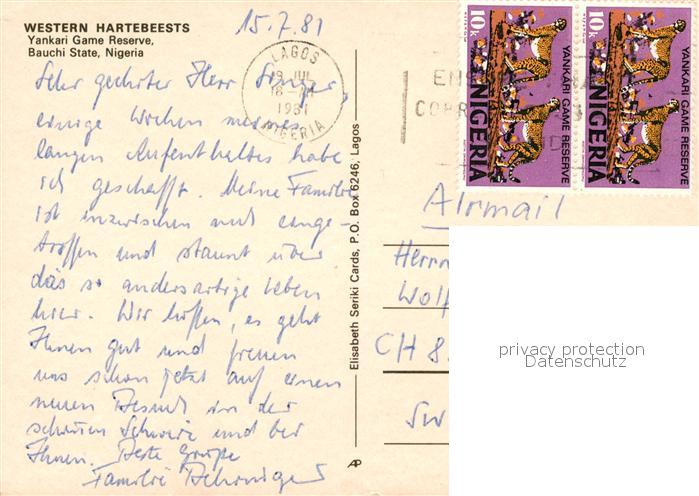 WESTERN HARTEBEESTS
Yankari Game Reserve,
Bauchi State, Nigeria
15.7.81
Sehr geehrter Herr
einige Wochen meines
langen Aufenthaltes habe
ich geschafft. Meine Familie
ist inzwischen auch einge-
troffen und staunt über
das so andersartige Leben
hier. Wir hoffen, es geht
Ihnen gut und freuen
uns schon jetzt auf einen
neuen Besuch in der
schönen Schweiz und bei
Ihnen. Beste Grüße
Familie
LAGOS
19 JUL
1981
NIGERIA
Elisabeth Seriki Cards, P.O. Box 6246, Lagos
AP
10k
YANKARI GAME RESERVE
NIGERIA
10k
YANKARI GAME RESERVE
NIGERIA
Airmail
Herrn
Wolf
CH 8.
Sw
privacy protection
Datenschutz